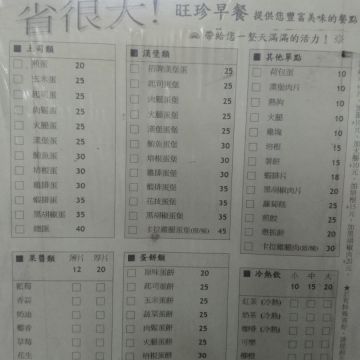 省很大!
旺珍早餐 提供您豐富美味的餐點
帶給您一整天滿滿的活力!
■土司類
煎蛋 20
玉米蛋 25
起司蛋 25
肉鬆蛋 25
火腿蛋 25
漢堡蛋 25
鮪魚蛋 30
培根蛋 30
雞排蛋 35
蝦排蛋 35
黑胡椒蛋 35
總匯 40
■漢堡類
招牌漢堡蛋 25
起司肉堡 25
火腿蛋堡 25
肉鬆蛋堡 25
鮪魚蛋堡 30
培根蛋堡 30
雞排蛋堡 35
蝦排蛋堡 35
花枝蛋堡 35
黑胡椒蛋堡 35
卡拉雞腿蛋堡(甜/辣) 45
■其他單點
荷包蛋 10
漢堡肉片 10
熱狗 10
火腿 10
雞塊 10
培根 15
薯餅 15
蝦排片 20
黑胡椒肉片 20
蘿蔔糕 25
煎餃 25
蔥抓餅 25
卡拉雞腿肉(甜/辣) 30
■果醬類 薄片 厚片
12 20
藍莓
香蒜
奶油
椰香
草莓
花生
■蛋餅類
原味蛋餅 20
起司蛋餅 25
玉米蛋餅 25
蔬菜蛋餅 25
肉鬆蛋餅 25
火腿蛋餅 25
培根蛋餅 30
■冷熱飲 小 中 大
10 15 20
紅茶(冷熱)
奶茶(冷熱)
咖啡(冷熱)
可樂
柳橙